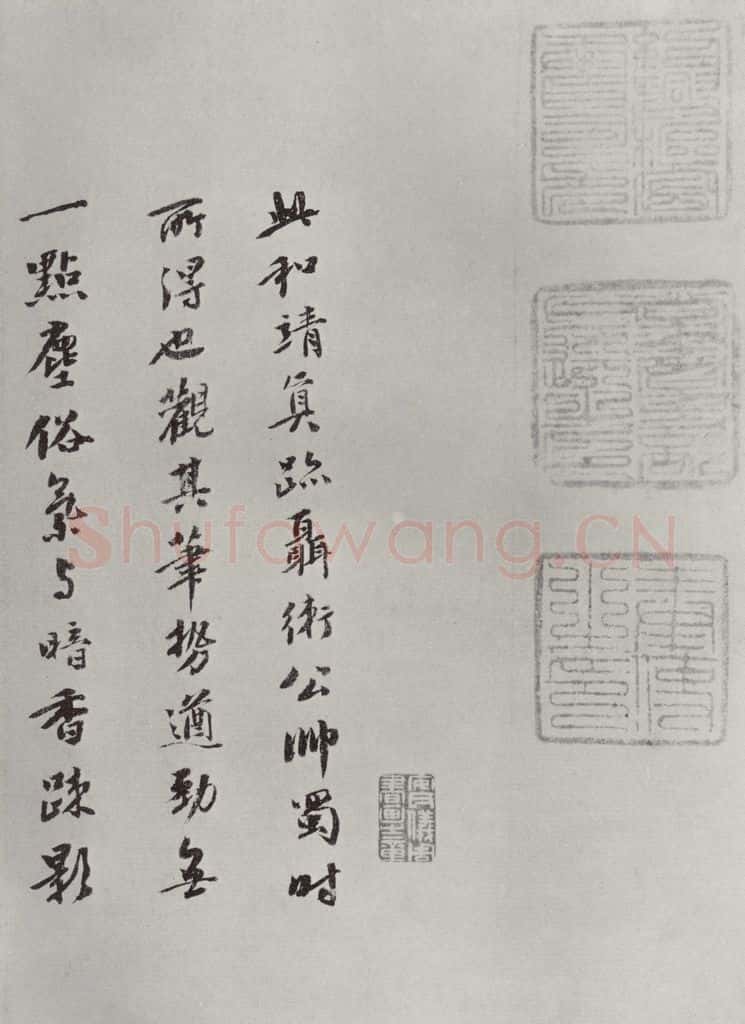 此和靖真跡聶衛公帥蜀时
所得也觀其筆勢遒勁無
一點塵俗氣与暗香踈影
Shufawang.CN